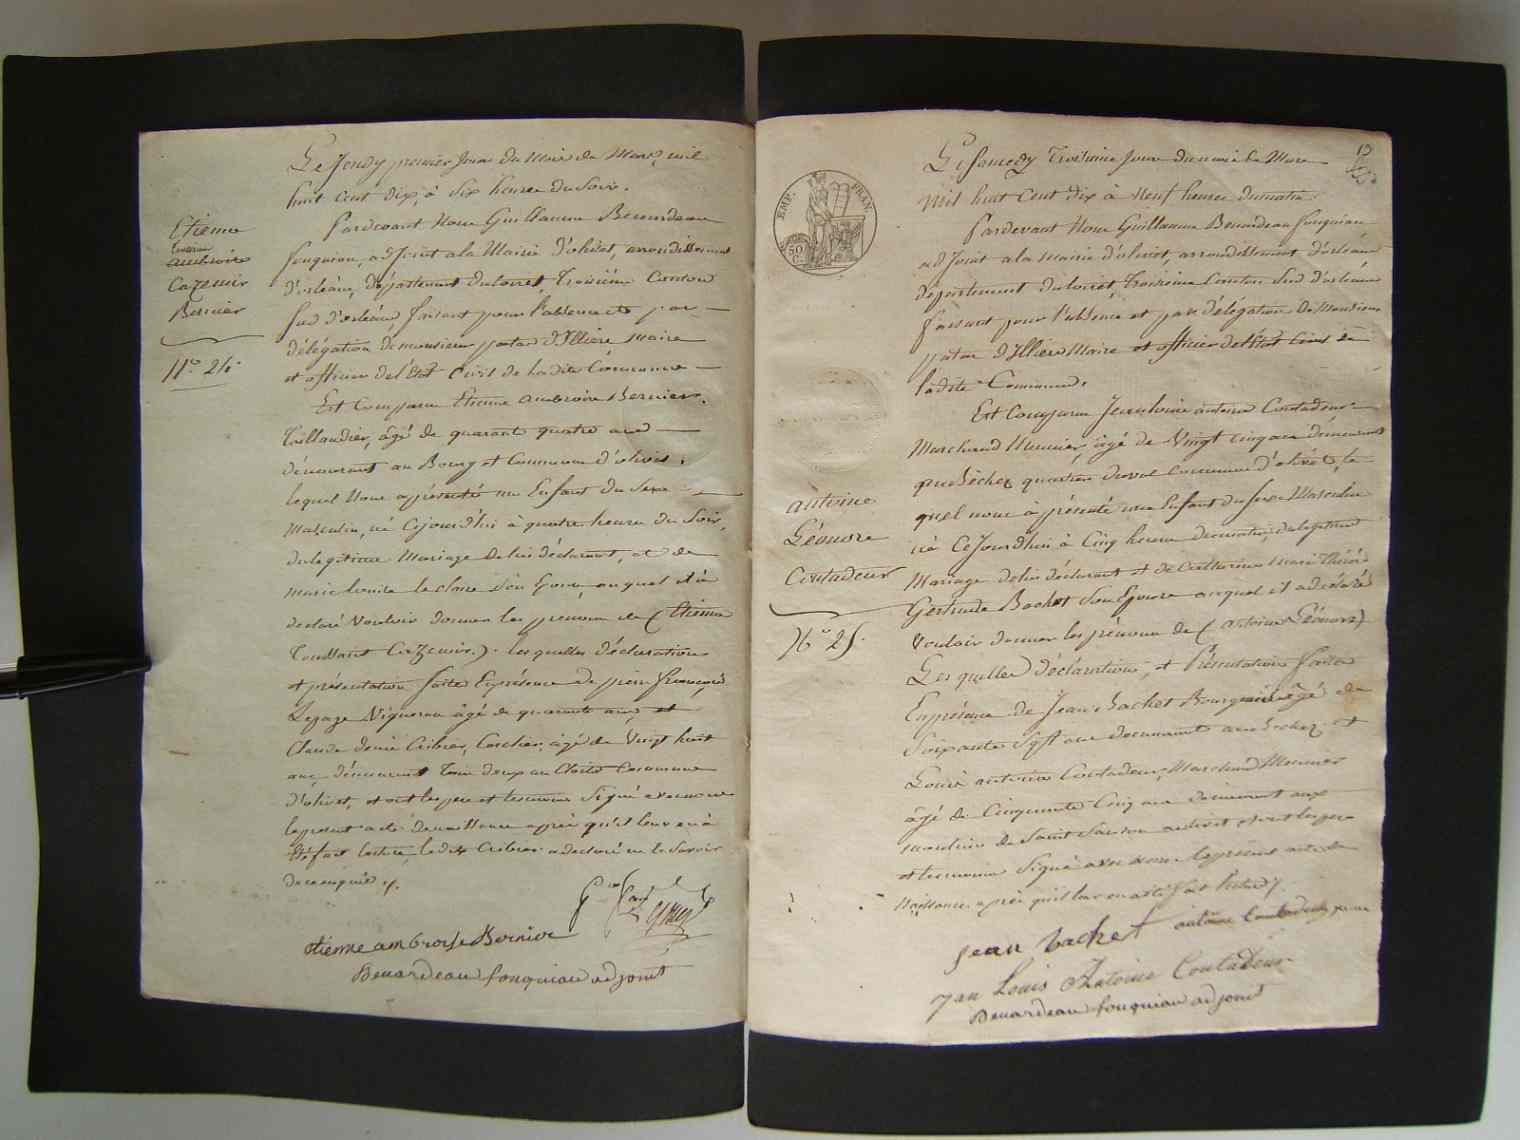 Le Jeudy premier Jour du Mois de Mars mil
huit cent dix, à six heures du Soir.
Pardevant Nous Guillaume Benardeau
fouquiau, adjoint a la Mairie d'olivet, arrondissement
d'orléans, département du loiret, Troisième Canton
Sud d'orléans, faisant pour l'absence et par
délégation de monsieur patas d'Illiers maire
et officier del'État Civil de ladite Commune
Est Comparu Etienne ambroise Bernier,
Taillandier, âgé de quarante quatre ans
demeurant au Bourg et Commune d'olivet,
lequel Nous a présenté un Enfant du Sexe
Masculin, né Cejourd'hui à quatre heures du Soir,
du legitime Mariage de lui déclarant, et de
marie louise son Epouse, auquel il à
declaré Vouloir donner les prenoms de (Etienne
Toussaint Cazemir). lesquelles déclaration
et présentation faite En présence de pierre françois
Lepage Vigneron âgé de quarante ans, et
Claude denis Cribier, âgé de Vingt huit
ans, demeurant Tous deux au Commune
d'olivet, et ont les pere et temoins Signé avec nous
le present acte de naissance après qu'il leur en à
été fait lecture, ledit Cribier a declaré ne le Savoir
de ce enquis ./.
Etienne
ambroise
Cazemir
Bernier
N.° 24.
etienne ambroise Bernier
Benardeau fouquiau adjoint
13
EMP. FRAN.
50
C.
Le Samedy Troisième Jour du mois de Mars
mil huit Cent dix à Neuf heures du matin
Pardevant Nous Guillaume Benardeau fouquiau
adjoint a la mairie d'olivet, arrondissement d'orléans
département du loiret, Troisième Canton Sud d'orléans
faisant pour l'absence et par délégation de Monsieur
patas d'Illiers Maire et officier del'État Civil de
ladite Commune.
Est Comparu Jean louis antoine Contadeur
Marchand Meunier, âgé de Vingt cinq ans demeurant
quartier du val Commune d'olivet, le
quel nous à présenté un Enfant du sexe Masculin
né Cejourd'hui à Cinq heures du matin, du legitime
Mariage de lui déclarant et de Catherine Marie Thérèse
Gertrude Bachet Son Epouse auquel il a déclaré
Vouloir donner les prénoms de (antoine Léonore)
Lesquelles déclaration, et Présentation faite
En présence de Jean Bachet Bourgeois âgé de
Soixante Sept ans demeurant et
Louis antoine Contadeur, Marchand Meunier
âgé de Cinquante Cinq ans demeurant aux
moulins de Saint Samson et ont les pere
et temoins Signé avec nous le présent acte de
Naissance après qu'il leur en a été fait lecture ./.
antoine
Léonore
Contadeur
N.° 25.
Jean bachet antoine Contadeur
Jean Louis Antoine Contadeur
Benardeau fouquiau adjoint